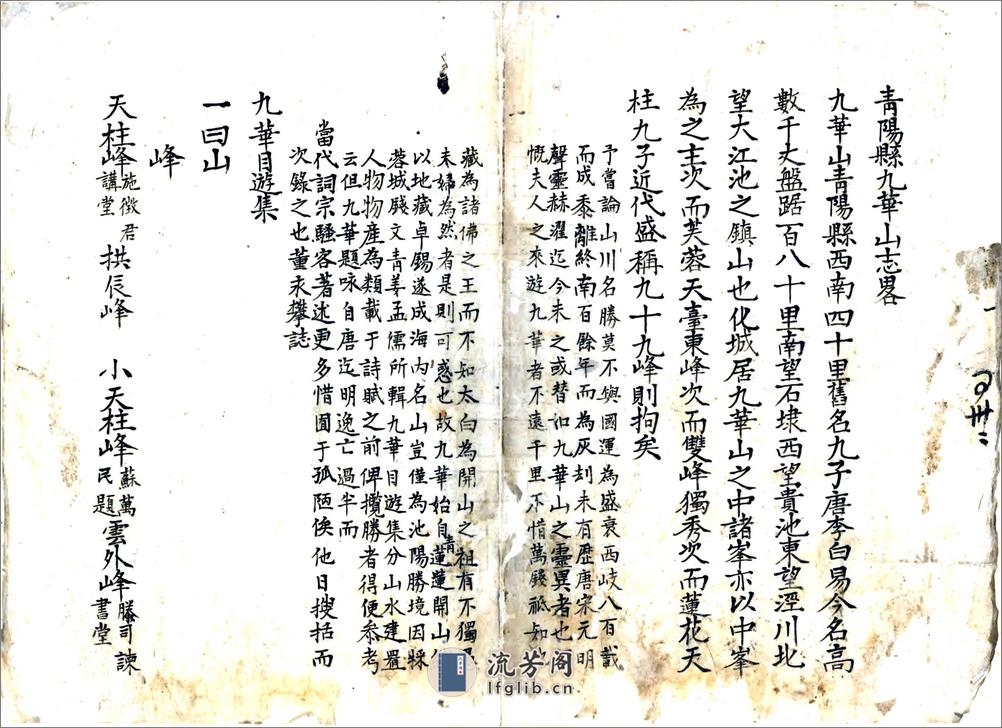 青陽縣九華山志畧
九華山青陽縣西南四十里舊名九子唐李白易今名高
數千丈盤踞百八十里南望石埭西望貴池東望涇川北
望大江池之鎮山也化城居九華山之中諸峯亦以中峯
為之主次而芙蓉天臺東峰次而雙峰獨秀次而蓮花天
柱九子近代盛稱九十九峰則拘矣
予嘗論山川名勝莫不與國運為盛衰西岐八百載
而成黍離終南百餘年而為灰刦未有歷唐宋元明
聲靈赫濯迄今未之或替如九華山之靈異者也
慨夫人之來遊九華者不遠千里不惜萬錢祗知
藏為諸佛之王而不知太白為開山之祖有不獨
未婦為然者是則可惑也故九華始自青蓮蓮開山
以地藏卓錫遂成海内名山豈僅為池陽勝境因採
蓉城賤文青羊孟儒所輯九華目遊集分山水建置
人物物産為類載于詩賦之前俾攬勝者得便叅考
云但九華題咏自唐迄明逸亡過半而
當代詞宗騷客著述更多惜囿于孤陋俟他日搜括而
次錄之也董永攀誌
九華目遊集
一曰山
峰
天柱峰施徵君講堂 拱辰峰 小天柱峰蘇萬民題 雲外峰滕司諫書堂
流芳阁
lfglib.cn